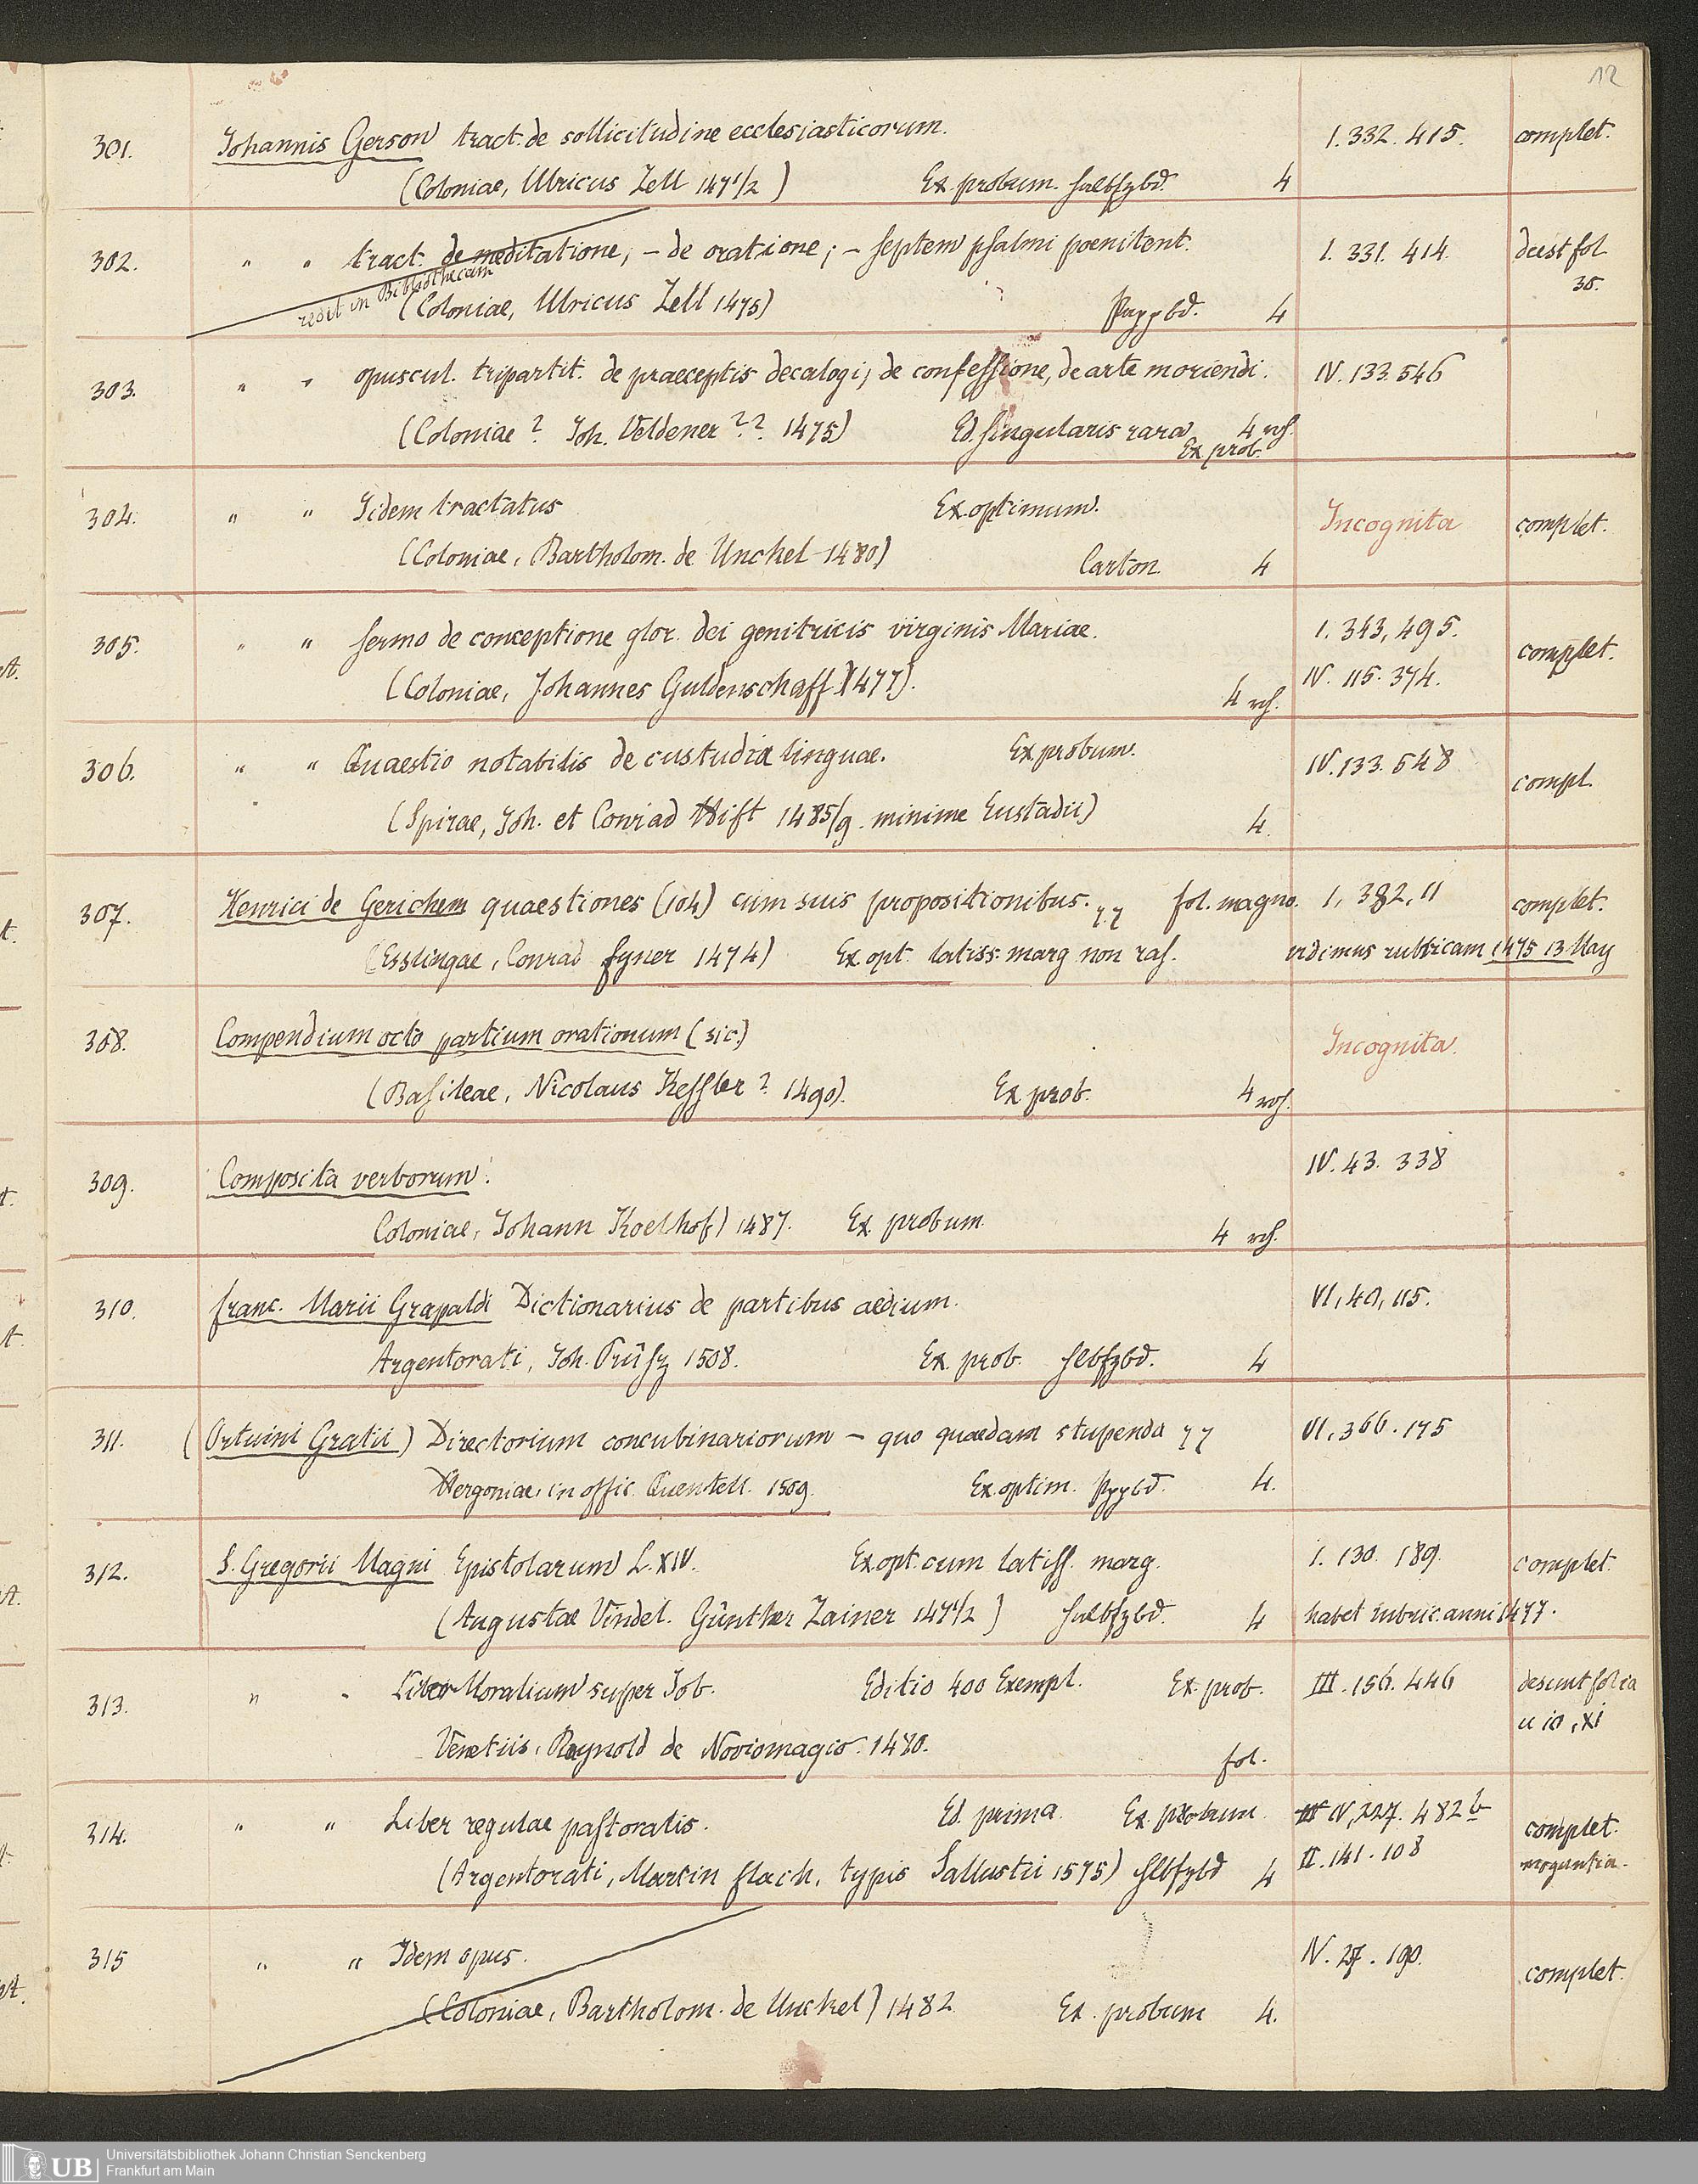 12
301. Johannis Gerson tract. de sollicitudine ecclesiasticorum. I. 332. 415. complet.
(Coloniae, Ulricus Zell 1471/2) Ex. probum. Halbfzbd. 4
302. " " tract. de meditatione, – de oratione; – septem psalmi poenitent. I. 331. 414. deest fol
redit in Bibliothecam (Coloniae, Ulricus Zell 1475) Pappbd. 4 35.
303. " " opuscul. tripartit. de praeceptis decalogi; de confessione, de arte moriendi. IV. 133. 546
(Coloniae? Joh. Veldener?? 1475) Ed. singularis rara 4 rh.
Ex prob.
304. " " Iidem tractatus Ex. optimum. Incognita complet.
(Coloniae, Bartholom. de Unckel 1480) Carton. 4
305. " " Sermo de conceptione glor. dei genitricis virginis Mariae. I. 343, 495.
(Coloniae, Johannes Guldenschaff 1477). 4 rh. IV. 115. 374. complet.
306. " " Quaestio notabilis de custudia linguae. Ex probum. IV. 133. 548 compl.
(Spirae, Joh. et Conrad Hift 1485/9. minime Eustadii) 4.
307. Henrici de Gerichem quaestiones (104) cum suis propositionibus. fol. magno. I, 382, 11 complet.
(Esslingae, Conrad Fyner 1474) Ex opt. latiss. marg non ras. vidimus rubricam 1475 13 May
308. Compendium octo partium orationum (sic.) Incognita.
(Basileae, Nicolaus Kessler? 1490). Ex prob. 4 roh.
309. Composita verborum. IV. 43. 338
Coloniae, Johann Koelhof) 1487. Ex. probum 4 rh.
310. Franc. Marii Grapaldi Dictionarius de partibus aedium. VI, 40, 115.
Argentorati, Joh. Prüsz 1508. Ex. prob. Hlbfzbd. 4
311. (Ortuini Gratii) Directorium concubinariorum – quo quaedam stupenda VI. 366. 175
in offic. Quentell. 1509. Ex. optim. Ppbd. 4.
312. S. Gregorii Magni Epistolarum L. XIV. Ex opt. cum latiss. marg. I. 130. 189. complet.
(Augustae Vindel. Günther Zainer 1471/2) Halbfzbd. 4 habet rubric. anni 1477.
313. " " Liber Moralium super Job. Editio 400 Exempl. Ex. prob. III. 156. 446 desunt folia
Venetiis, Raynold de Noviomagio. 1480. fol. u 10, XI
314. " " Liber regulae pastoralis. Ed. prima. Ex. probum. III IV, 227. 482 b complet.
(Argentorati, Martin Flach, typis Sallustii 1575) Hlbfzbd 4 II. 141. 108
315 " " Idem opus. IV. 27. 190. complet.
(Coloniae, Bartholom. de Unckel) 1482 Ex. probum 4.
UB Universitätsbibliothek Johann Christian Senckenberg
Frankfurt am Main